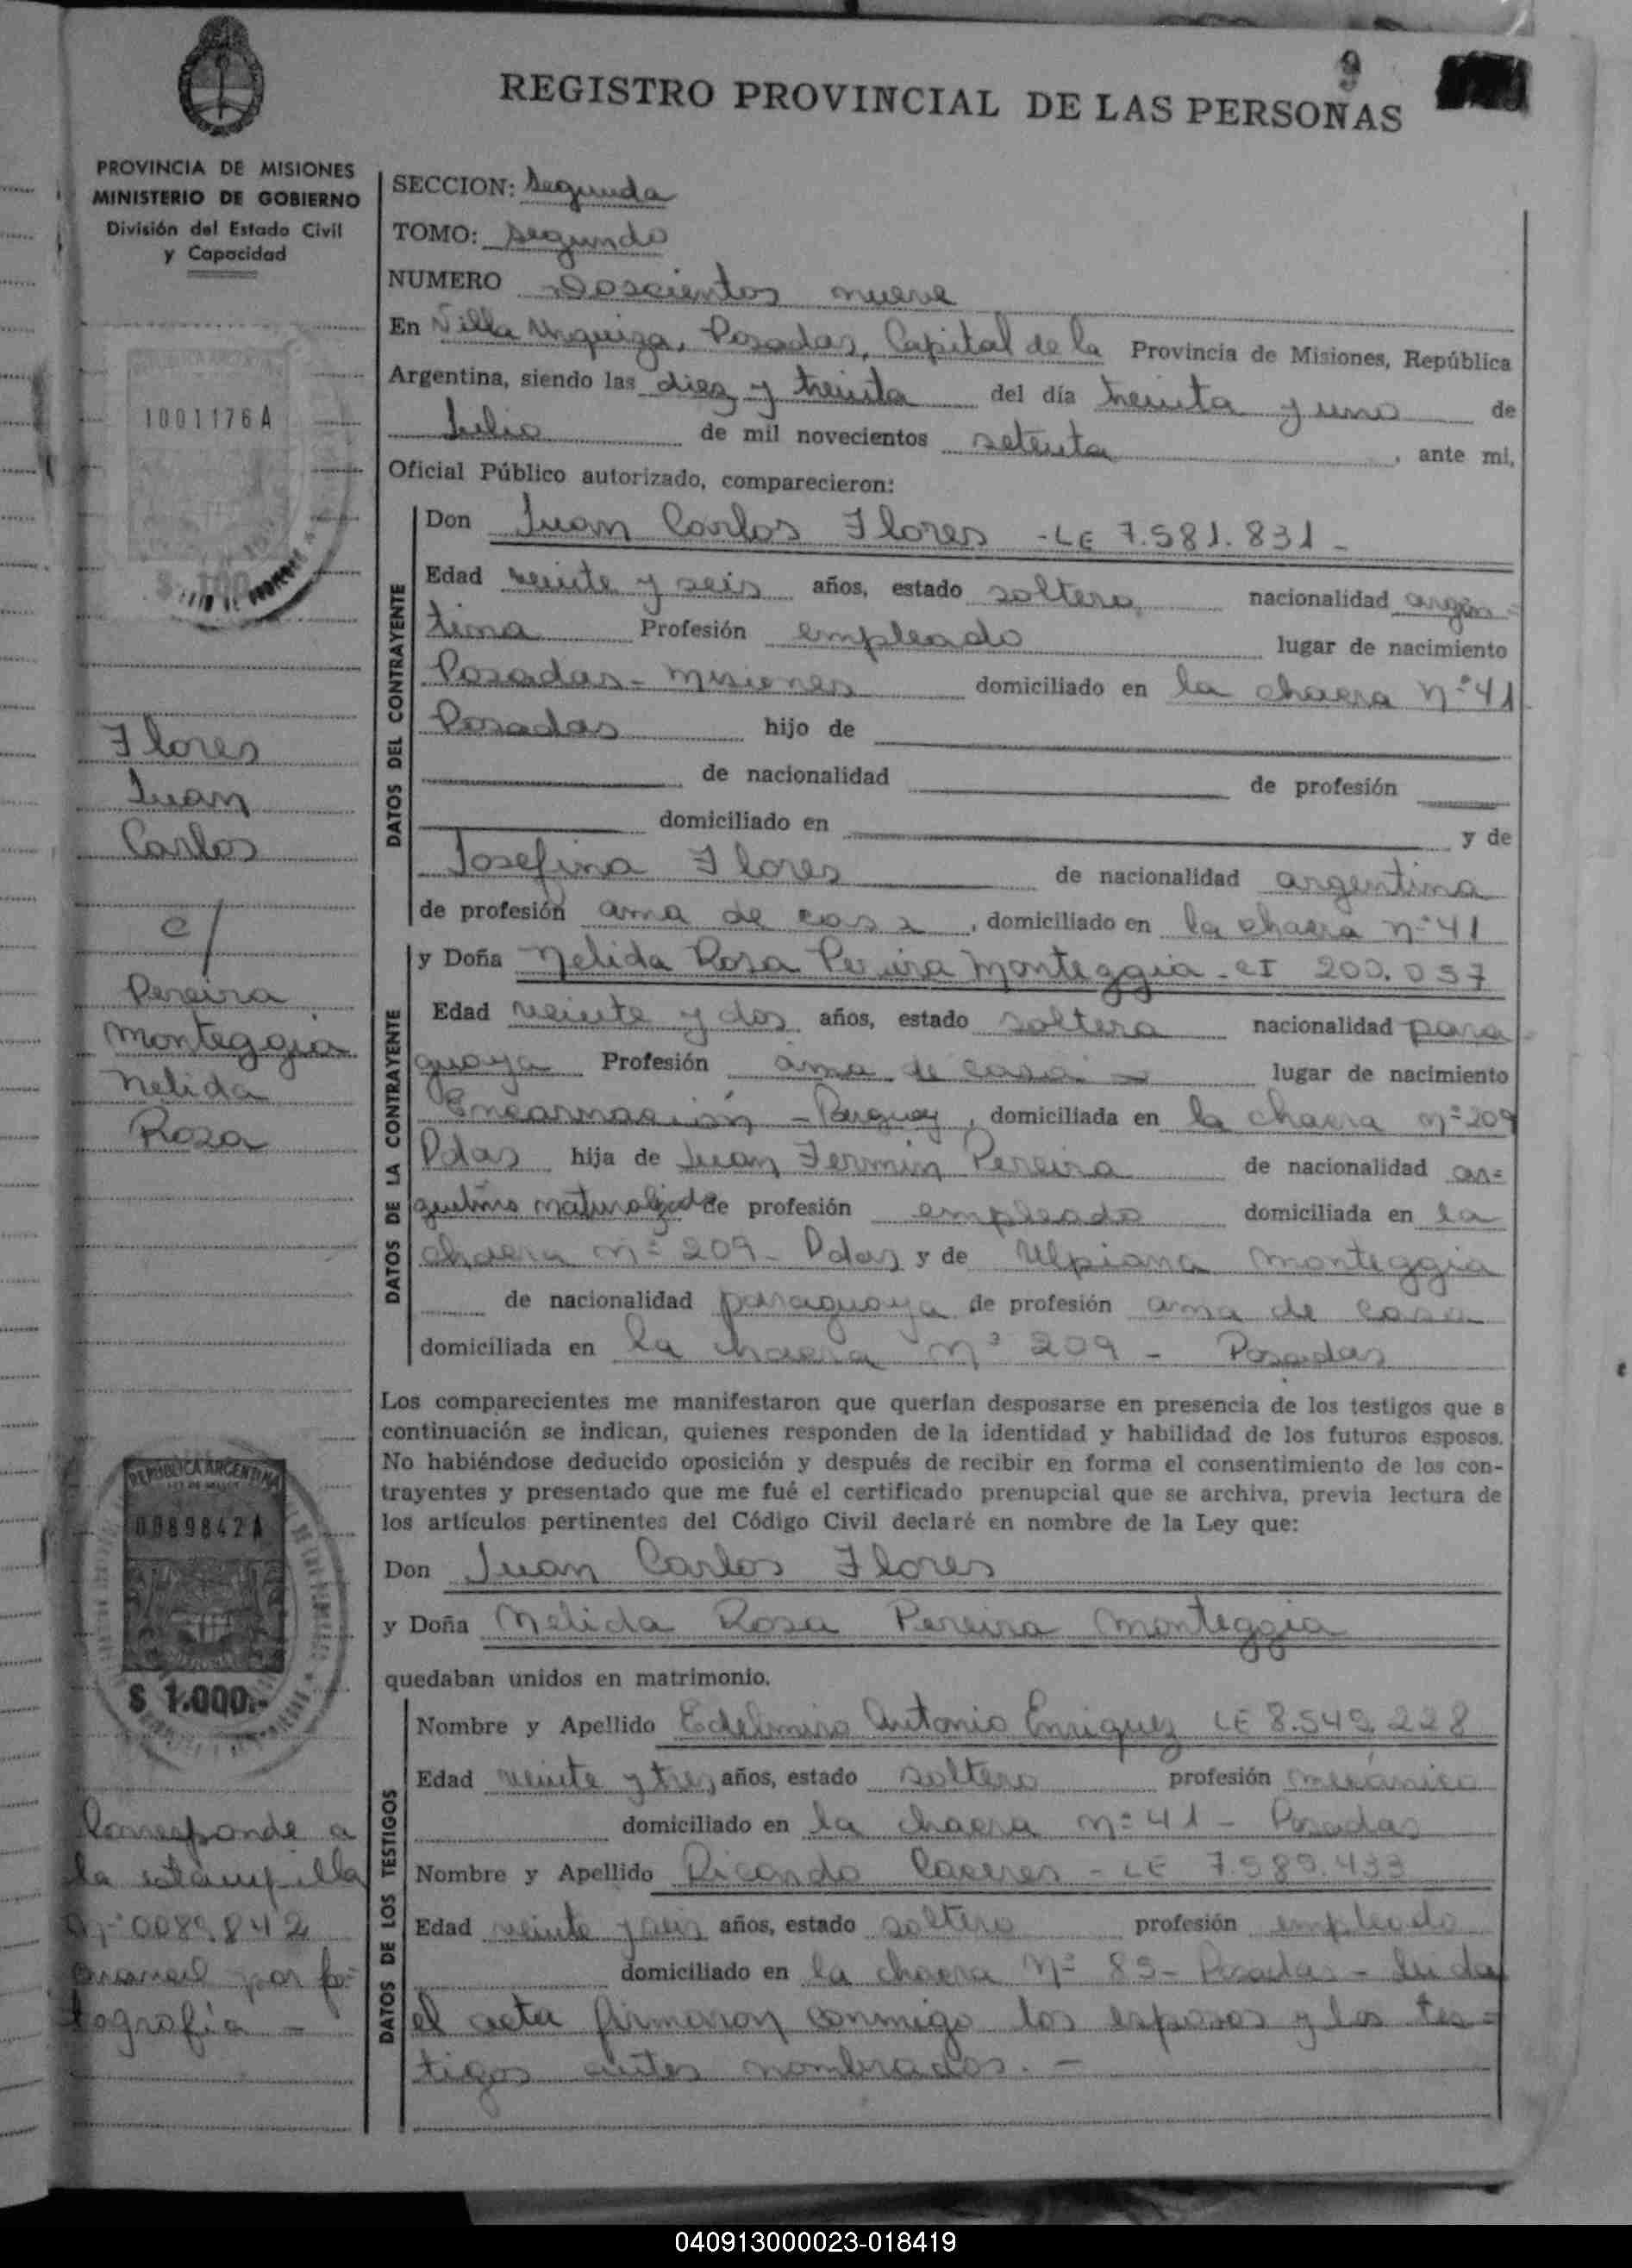 9
REGISTRO PROVINCIAL DE LAS PERSONAS
PROVINCIA DE MISIONES
MINISTERIO DE GOBIERNO
División del Estado Civil
y Capacidad
1001176A
Flores
Juan
Carlos
c/
Pereira
Monteggia
Nelida
Rosa
REPUBLICA ARGENTINA
0089842A
$ 1.000.-
Corresponde a
la estampilla
Nº 0089842
por fo-
tografía -
SECCION: Segunda
TOMO: Segundo
NUMERO Doscientos nueve
En Villa Urquiza, Posadas, Capital de la Provincia de Misiones, República
Argentina, siendo las diez y treinta del día treinta y uno de
Julio de mil novecientos setenta, ante mi,
Oficial Público autorizado, comparecieron:
DATOS DEL CONTRAYENTE
Don Juan Carlos Flores - LE 7.581.831 -
Edad veinte y seis años, estado soltero nacionalidad argen-
tina Profesión empleado lugar de nacimiento
Posadas - Misiones domiciliado en la chacra Nº 41
Posadas hijo de
de nacionalidad de profesión
domiciliado en y de
Josefina Flores de nacionalidad argentina
de profesión ama de casa, domiciliado en la chacra nº 41
DATOS DE LA CONTRAYENTE
y Doña Nelida Rosa Pereira Monteggia - CI 200.057
Edad veinte y dos años, estado soltera nacionalidad para
guaya Profesión ama de casa lugar de nacimiento
Encarnación - Paraguay, domiciliada en la chacra nº 209
Pdas hija de Juan Fermin Pereira de nacionalidad ar-
gentino naturalizado de profesión empleado domiciliada en la
chacra nº 209 - Pdas y de Ulpiana Monteggia
de nacionalidad paraguaya de profesión ama de casa
domiciliada en la chacra nº 209 - Posadas
Los comparecientes me manifestaron que querían desposarse en presencia de los testigos que a
continuación se indican, quienes responden de la identidad y habilidad de los futuros esposos.
No habiéndose deducido oposición y después de recibir en forma el consentimiento de los con-
trayentes y presentado que me fué el certificado prenupcial que se archiva, previa lectura de
los artículos pertinentes del Código Civil declaré en nombre de la Ley que:
Don Juan Carlos Flores
y Doña Nelida Rosa Pereira Monteggia
quedaban unidos en matrimonio.
DATOS DE LOS TESTIGOS
Nombre y Apellido Edelmiro Antonio Enriquez LE 8.549.228
Edad veinte y tres años, estado soltero profesión mecánico
domiciliado en la chacra nº 41 - Posadas
Nombre y Apellido Ricardo Caceres - LE 7.589.433
Edad veinte y seis años, estado soltero profesión empleado
domiciliado en la chacra Nº 89 - Posadas - Leida
el acta firmaron conmigo los esposos y los tes-
tigos antes nombrados. -
040913000023-018419